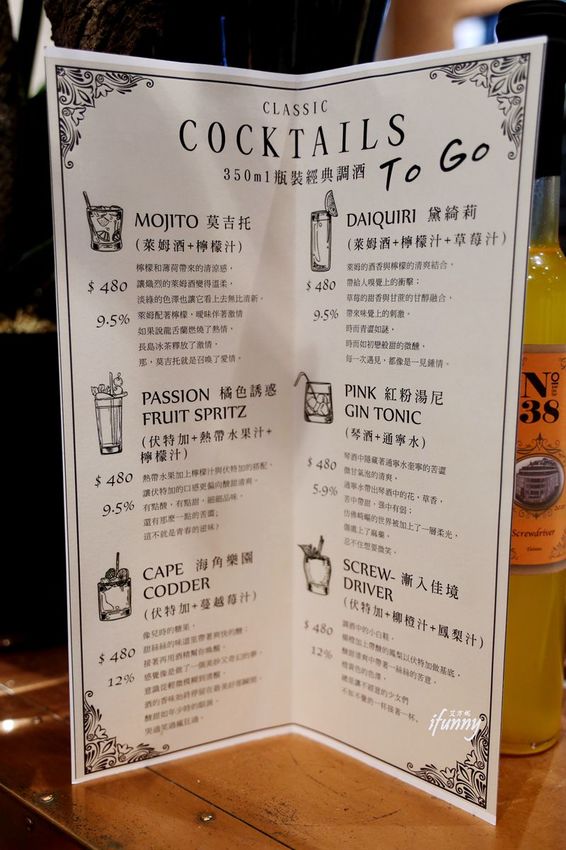 CLASSIC
COCKTAILS
To Go
350ml瓶裝經典調酒
MOJITO 莫吉托
(萊姆酒+檸檬汁)
檸檬和薄荷帶來的清涼感，
$ 480
讓熾烈的萊姆酒變得溫柔，
淡綠的色澤也讓它看上去無比清新。
9.5%
萊姆配著檸檬，曖昧伴著激情
如果說龍舌蘭燃燒了熱情，
長島冰茶釋放了激情，
那，莫吉托就是召喚了愛情。
PASSION 橘色誘惑
FRUIT SPRITZ
(伏特加+熱帶水果汁+
檸檬汁)
熱帶水果加上檸檬與伏特加的搭配，
$ 480
讓伏特加的口感更偏向酸甜清爽。
有點酸，有點甜，細細品味，
9.5%
還有那麼一點的苦澀；
這不就是青春的滋味？
CAPE 海角樂園
CODDER
(伏特加+蔓越莓汁)
像兒時的糖果，
甜絲絲的味道里帶著爽快的酸；
$ 480
接著再用酒精幫你喚醒。
感覺像是做了一個美妙又奇幻的夢，
12%
意識從輕微模糊到清醒，
酒的香味始終停留在最美好那瞬間。
酸甜如年少時的眼淚，
哭過笑過瘋狂過。
DAIQUIRI 黛綺莉
(萊姆酒+檸檬汁+草莓汁)
萊姆的酒香與檸檬的清爽結合，
$ 480
帶給人嗅覺上的衝擊；
草莓的甜香與甘蔗的甘醇融合，
9.5%
帶來味覺上的刺激。
時而青澀如謎，
時而如初戀般甜的微醺，
每一次遇見，都像是一見鍾情。
PINK 紅粉湯尼
GIN TONIC
(琴酒+通寧水)
琴酒中隱藏著通寧水奎寧的苦澀
$ 480
微甘氣泡的清爽，
通寧水帶出琴酒中的花，草香，
5.9%
苦中帶甜，強中有弱；
彷彿崎嶇的世界被加上了一層柔光，
傷嘴上了麻藥，
忍不住想要微笑。
SCREW- 漸入佳境
DRIVER
(伏特加+柳橙汁+鳳梨汁)
調酒中的小白鞋，
$ 480
柳橙加上帶酸的鳳梨以伏特加做基底，
酸甜清爽中帶著一絲絲的苦意，
12%
橙黃色的色澤，
總是讓不經意的少女們
不知不覺的一杯接著一杯。
No
38
Screwdriver
艾方妮
ifunny